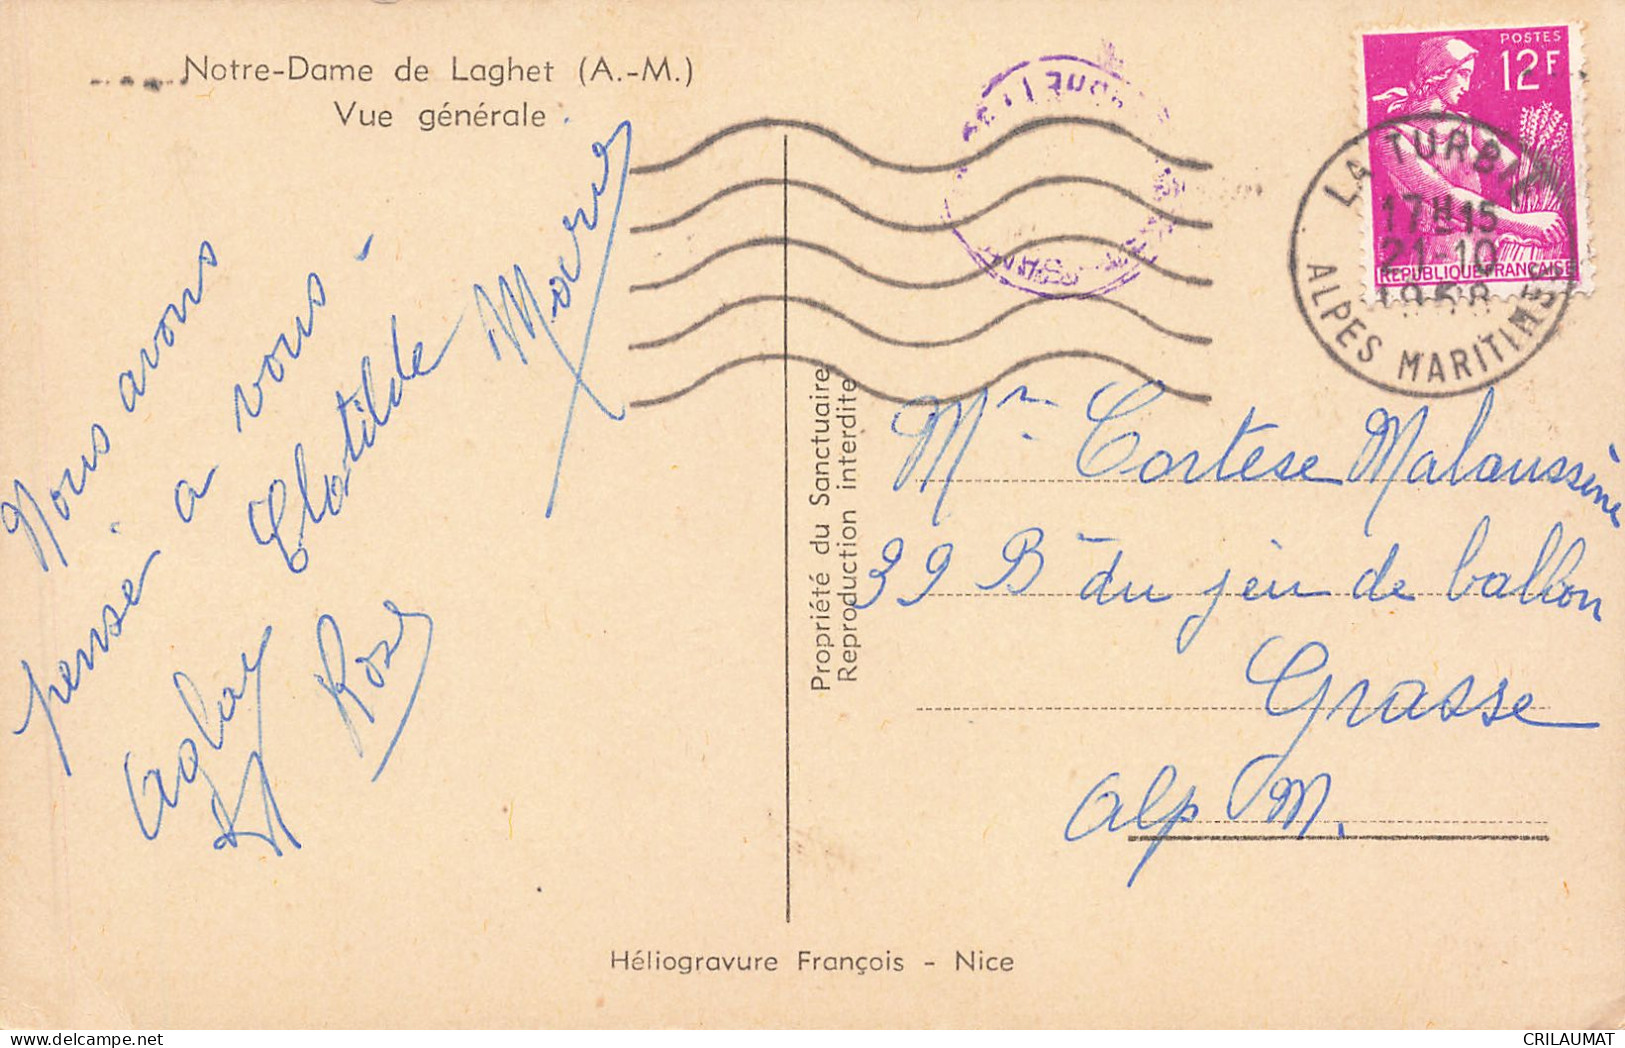 Notre-Dame de Laghet (A.-M.)
Vue générale
Nous avons
pensé à vous -
Clotilde Marie
Aglae Rose
POSTES
12F
REPUBLIQUE FRANÇAISE
LA TURBIE
17H15
21-10
1958
ALPES MARITIMES
Propriété du Sanctuaire
Reproduction interdite
Mr Cortese Malaussène
39 B du jeu de ballon
Grasse
Alp M.
Héliogravure François - Nice
CRILAUMAT